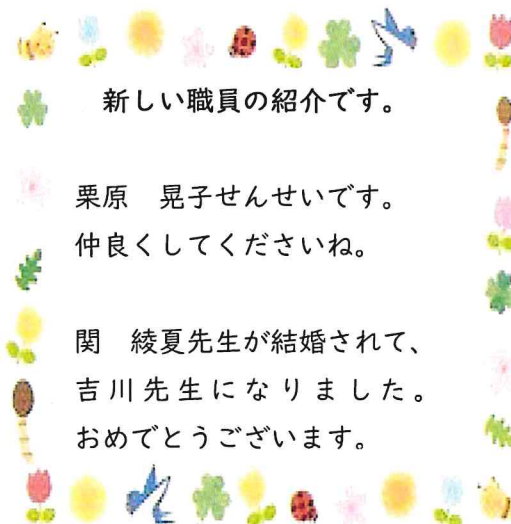 新しい職員の紹介です。
栗原　晃子せんせいです。
仲良くしてくださいね。
関　綾夏先生が結婚されて、
吉川先生になりました。
おめでとうございます。